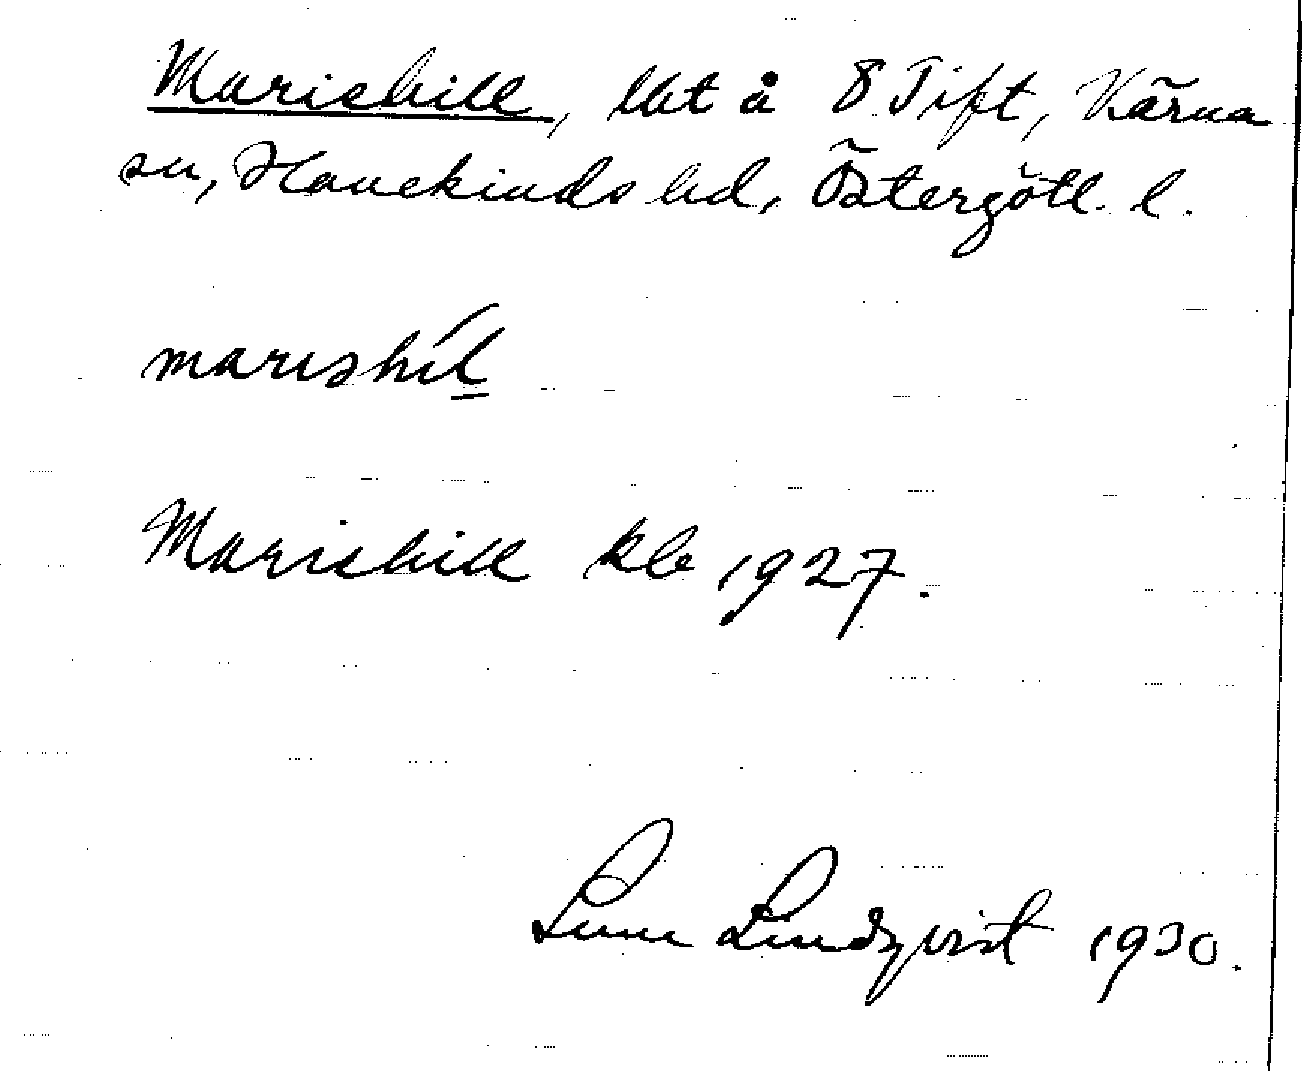 Marishill, lht å 8 Tift, Kärna
sn, Hanekinds hd, Östergötl. l.
marishíl
Marishill kb 1927.
Sune Lindqvist 1930.